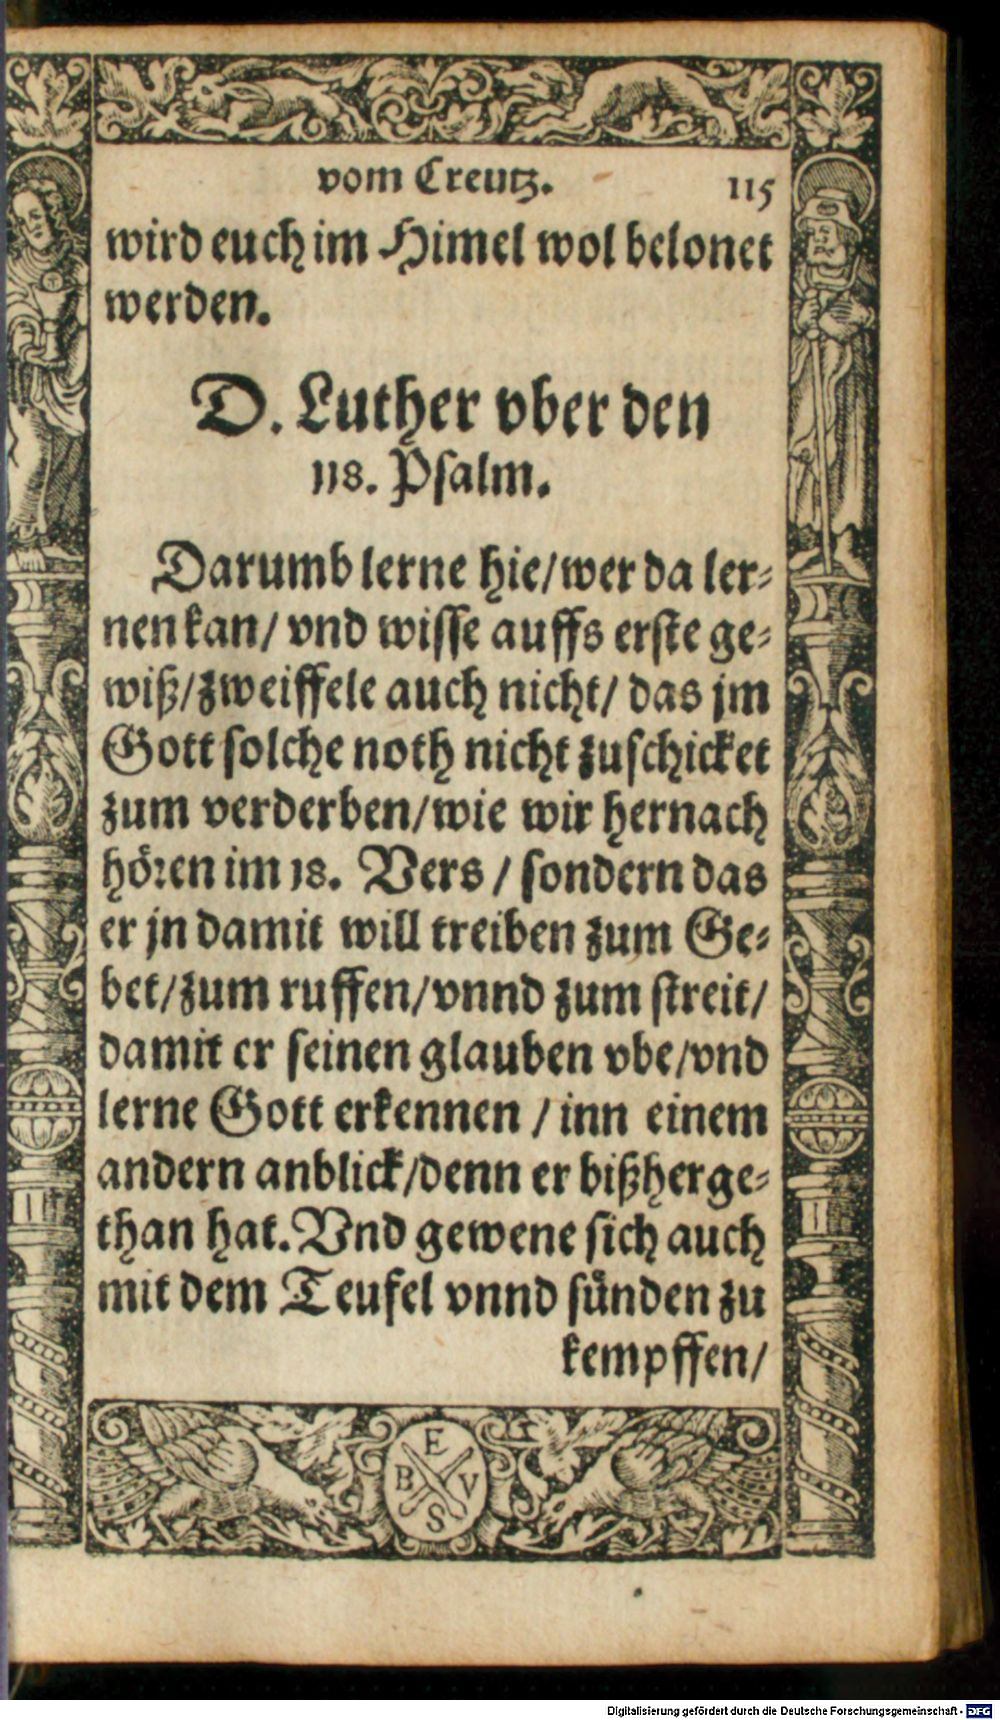 vom Creutz. 115
wird euch im Himel wol belonet
werden.
D. Luther vber den
118. Psalm.
Darumb lerne hie/wer da ler⸗
nen kan/ vnd wisse auffs erste ge⸗
wiß/zweiffele auch nicht/ das jm
Gott solche noth nicht zuschicket
zum verderben/wie wir hernach
hören im 18. Vers / sondern das
er jn damit will treiben zum Ge⸗
bet/zum ruffen/vnnd zum streit/
damit er seinen glauben vbe/vnd
lerne Gott erkennen / inn einem
andern anblick/denn er bißher ge⸗
than hat. Vnd gewene sich auch
mit dem Teufel vnnd sünden zu
kempffen/
E
B V
S
Digitalisierung gefördert durch die Deutsche Forschungsgemeinschaft - DFG